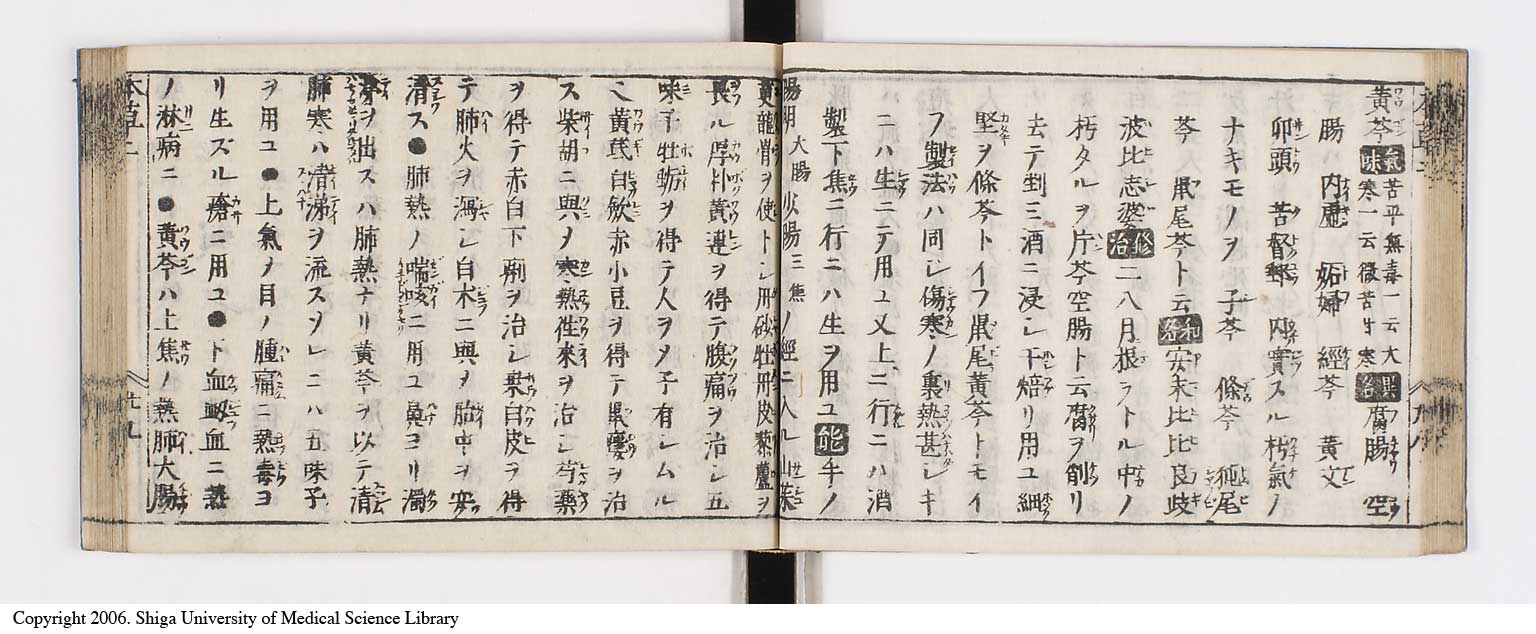 黄芩 氣味 苦平無毒一云大寒一云微苦甘寒 異名 腐腸 空
腸ハ 内虚 妬婦 經芩 黄文
卯頭 苦督郵 内實スル朽氣ノ
ナキモノヲ 子芩 條芩 㹠尾
芩 鼠尾芩ト云 和名 安末比比良歧
波比志婆 修治 二八月根ヲトル中ノ
朽タルヲ片芩空腸ト云腐ヲ削リ
去テ剉ミ酒ニ浸シ干焙リ用ユ細
堅ヲ條芩トイフ鼠尾黄芩トモイ
フ製法ハ同シ傷寒ノ裏熱甚シキ
ニハ生ニテ用ユ又上ニ行ニハ酒
製下焦ニ行ニハ生ヲ用ユ 能 手ノ
陽明大腸少陽三焦ノ經ニ入ル山茱
萸龍骨ヲ使トシ丹砂牡丹皮藜蘆ヲ
畏ル厚朴黄連ヲ得テ腹痛ヲ治シ五
味子牡蛎ヲ得テ人ヲメ子有シムル
黄芪白斂赤小豆ヲ得テ鼠瘻ヲ治
ス柴胡ニ與ノ寒熱徃來ヲ治シ芍藥
ヲ得テ赤白下痢ヲ治シ桒白皮ヲ得
テ肺火ヲ瀉シ白朮ニ與ヲ胎中ヲ安
清ス●肺熱ノ喘咳ニ用ユ鼻ヨリ濁
涕ヲ出スハ肺熱ナリ黄芩ヲ以テ清
肺寒ハ清涕ヲ流スヲレニハ五味子
ヲ用ユ●上氣ノ目ノ腫痛ニ熱毒ヨ
リ生ズル瘡ニ用ユ●下血衂血ニ熱
ノ淋病ニ●黄芩ハ上焦ノ熱肺大腸
本草二